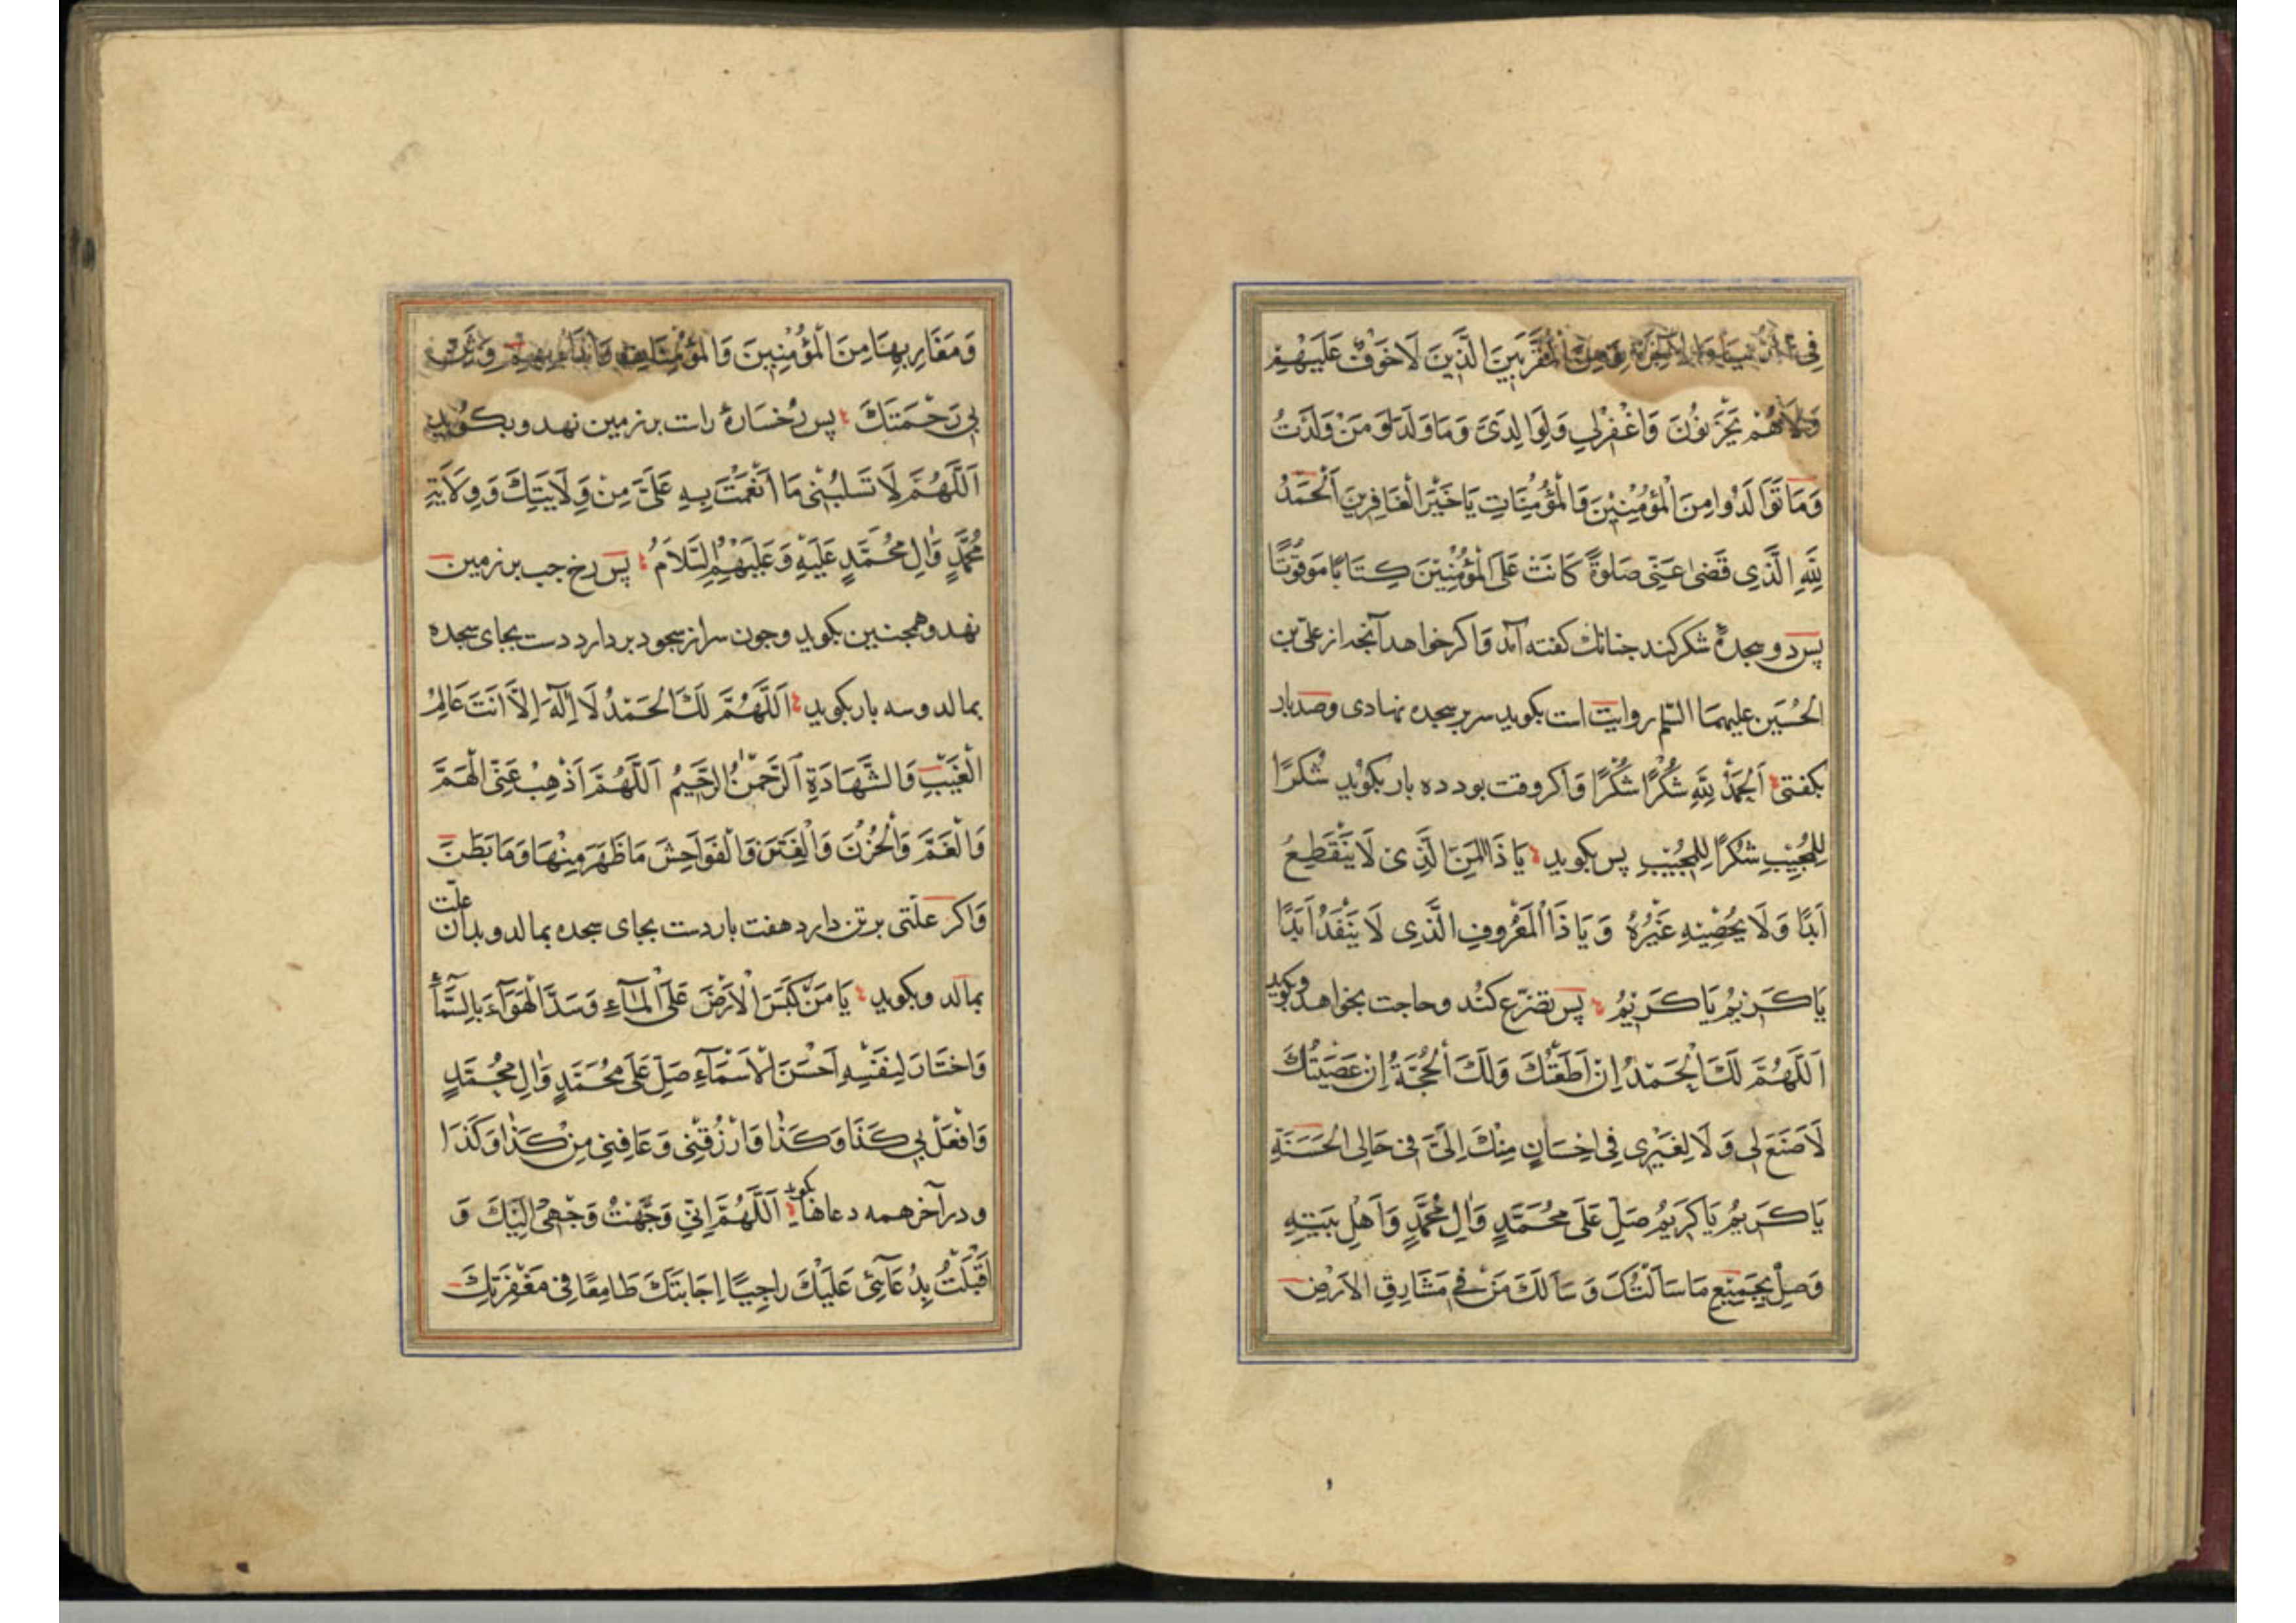 فِي الدُّنْيَا وَالْآخِرَةِ وَمِنَ الْمُقَرَّبِينَ الَّذِينَ لَا خَوْفٌ عَلَيْهِمْ
وَلَا هُمْ يَحْزَنُونَ وَاغْفِرْلِي وَلِوَالِدَيَّ وَمَا وَلَدَا وَمَنْ وَلَدْتُ
وَمَا تَوَالَدُوا مِنَ الْمُؤْمِنِينَ وَالْمُؤْمِنَاتِ يَا خَيْرَ الْغَافِرِينَ اَلْحَمْدُ
لِلَّهِ الَّذِي قَضٰى عَنِّي صَلٰوةً كَانَتْ عَلَى الْمُؤْمِنِينَ كِتَابًا مَوْقُوتًا
پس دو سجدهٔ شکر کند جنانک کفته آمد وَاکر خواهد آنجه از علىّ بن
الْحُسَين عليهما السّلم روايت است بکويد سر بر سجده نهادى وصد بار
بکفتى اَلْحَمْدُ لِلَّهِ شُكْرًا شُكْرًا وَاکر وقت بود ده بار بکويد شُكْرًا
لِلْمُجِيبِ شُكْرًا لِلْمُجِيبِ پس بکويد يَا ذَا الْمَنِّ الَّذِى لَا يَنْقَطِعُ
اَبَدًا وَلَا يُحْصِيْهِ غَيْرُهُ وَيَا ذَا الْمَعْرُوفِ الَّذِى لَا يَنْفَدُ اَبَدًا
يَا كَرِيْمُ يَا كَرِيْمُ پس تضرّع کند وحاجت بخواهد وبکويد
اَللَّهُمَّ لَكَ الْحَمْدُ اِنْ اَطَعْتُكَ وَلَكَ الْحُجَّةُ اِنْ عَصَيْتُكَ
لَا صُنْعَ لِى وَلَا لِغَيْرِى فِى اِحْسَانٍ مِنْكَ اِلَىَّ فِى حَالِى الْحَسَنَةِ
يَا كَرِيْمُ يَا كَرِيْمُ صَلِّ عَلَى مُحَمَّدٍ وَاٰلِ مُحَمَّدٍ وَاَهْلِ بَيْتِهِ
وَصِلْ بِجَمِيْعِ مَا سَاَلْتُكَ وَسَاَلَكَ مَنْ فِى مَشَارِقِ الْاَرْضِ
وَمَغَارِبِهَا مِنَ الْمُؤْمِنِينَ وَالْمُؤْمِنَاتِ
بِى رَحْمَتِكَ پس رُخسارهٔ راست بر زمين نهد وبکويد
اَللَّهُمَّ لَا تَسْلُبْنِى مَا اَنْعَمْتَ بِهِ عَلَىَّ مِنْ وِلَايَتِكَ وَوِلَايَةِ
مُحَمَّدٍ وَاٰلِ مُحَمَّدٍ عَلَيْهِ وَعَلَيْهِمُ السَّلَامُ پس رخ جب بر زمين
نهد وهمجنين بکويد وجون سر از سجود بردارد دست بجاى سجده
بمالد وسه بار بکويد اَللَّهُمَّ لَكَ الْحَمْدُ لَا اِلٰهَ اِلَّا اَنْتَ عَالِمُ
الْغَيْبِ وَالشَّهَادَةِ اَلرَّحْمٰنُ الرَّحِيْمُ اَللَّهُمَّ اَذْهِبْ عَنِّى الْهَمَّ
وَالْغَمَّ وَالْحُزْنَ وَالْفِتَنَ وَالْفَوَاحِشَ مَا ظَهَرَ مِنْهَا وَمَا بَطَنَ
وَاکر علّتى بر تن دارد هفت بار دست بجاى سجده بمالد وبدان علّت
بمالد وبکويد يَا مَنْ كَبَسَ الْاَرْضَ عَلَى الْمَاءِ وَسَدَّ الْهَوَاءَ بِالسَّمَاءِ
وَاخْتَارَ لِنَفْسِهِ اَحْسَنَ الْاَسْمَاءِ صَلِّ عَلَى مُحَمَّدٍ وَاٰلِ مُحَمَّدٍ
وَافْعَلْ بِى كَذَا وَكَذَا وَارْزُقْنِى وَعَافِنِى مِنْ كَذَا وَكَذَا
ودر آخر همه دعاها بکويد اَللَّهُمَّ اِنِّى وَجَّهْتُ وَجْهِى اِلَيْكَ وَ
اَقْبَلْتُ بِدُعَائِى عَلَيْكَ رَاجِيًا اِجَابَتَكَ طَامِعًا فِى مَغْفِرَتِكَ